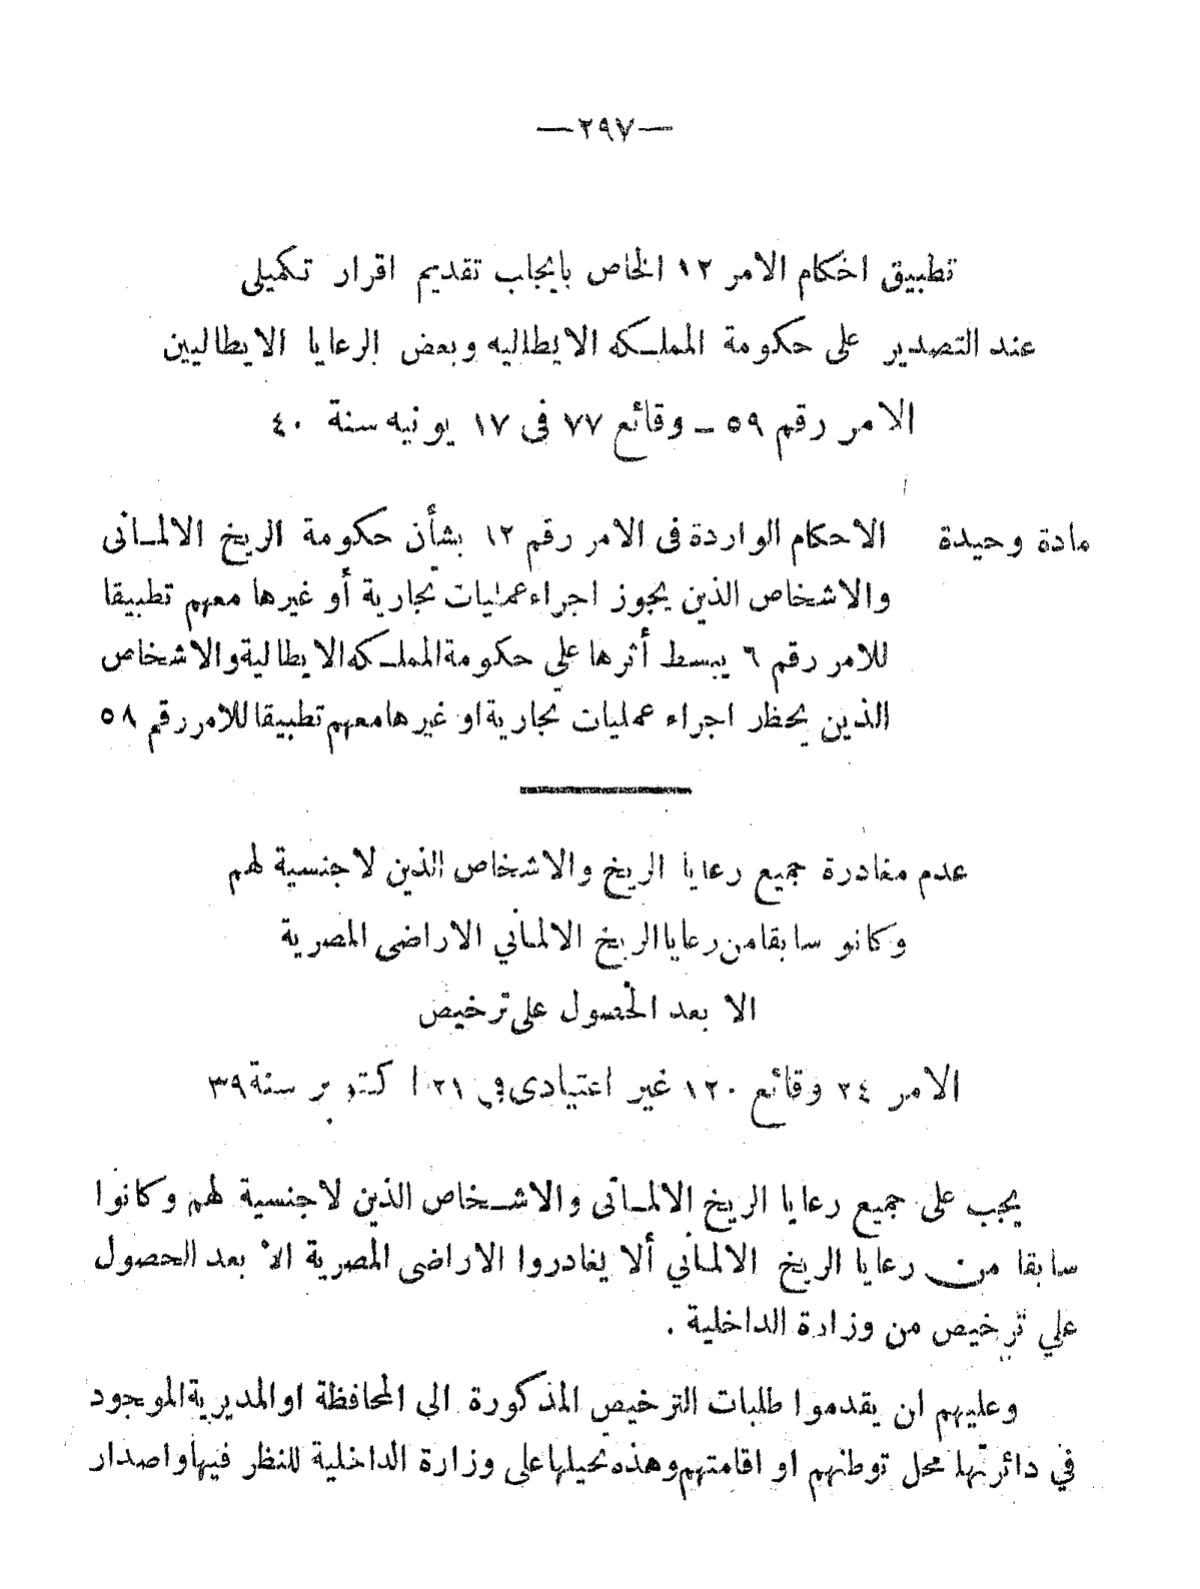 —٢٩٧—
تطبيق احكام الامر ١٢ الخاص بايجاب تقديم اقرار تكميلى
عند التصدير على حكومة المملكه الايطاليه وبعض الرعايا الايطاليين
الامر رقم ٥٩ – وقائع ٧٧ فى ١٧ يونيه سنة ٤٠
مادة وحيدة الاحكام الواردة فى الامر رقم ١٢ بشأن حكومة الريخ الالمانى
والاشخاص الذين يجوز اجراء عمليات تجارية أو غيرها معهم تطبيقا
للامر رقم ٦ يبسط أثرها على حكومة المملكه الايطالية والاشخاص
الذين يحظر اجراء عمليات تجارية او غيرها معهم تطبيقا للامر رقم ٥٨
عدم مغادرة جميع رعايا الريخ والاشخاص الذين لا جنسية لهم
وكانو سابقا من رعايا الريخ الالماني الاراضى المصرية
الا بعد الحصول على ترخيص
الامر ٢٤ وقائع ١٢٠ غير اعتيادى في ٢١ اكتوبر سنة ٣٩
يجب على جميع رعايا الريخ الالمانى والاشخاص الذين لا جنسية لهم وكانوا
سابقا من رعايا الريخ الالماني ألا يغادروا الاراضى المصرية الا بعد الحصول
علي ترخيص من وزارة الداخلية .
وعليهم ان يقدموا طلبات الترخيص المذكورة الى المحافظة او المديرية الموجود
في دائرتها محل توطنهم او اقامتهم وهذه تحيلها على وزارة الداخلية للنظر فيها واصدار